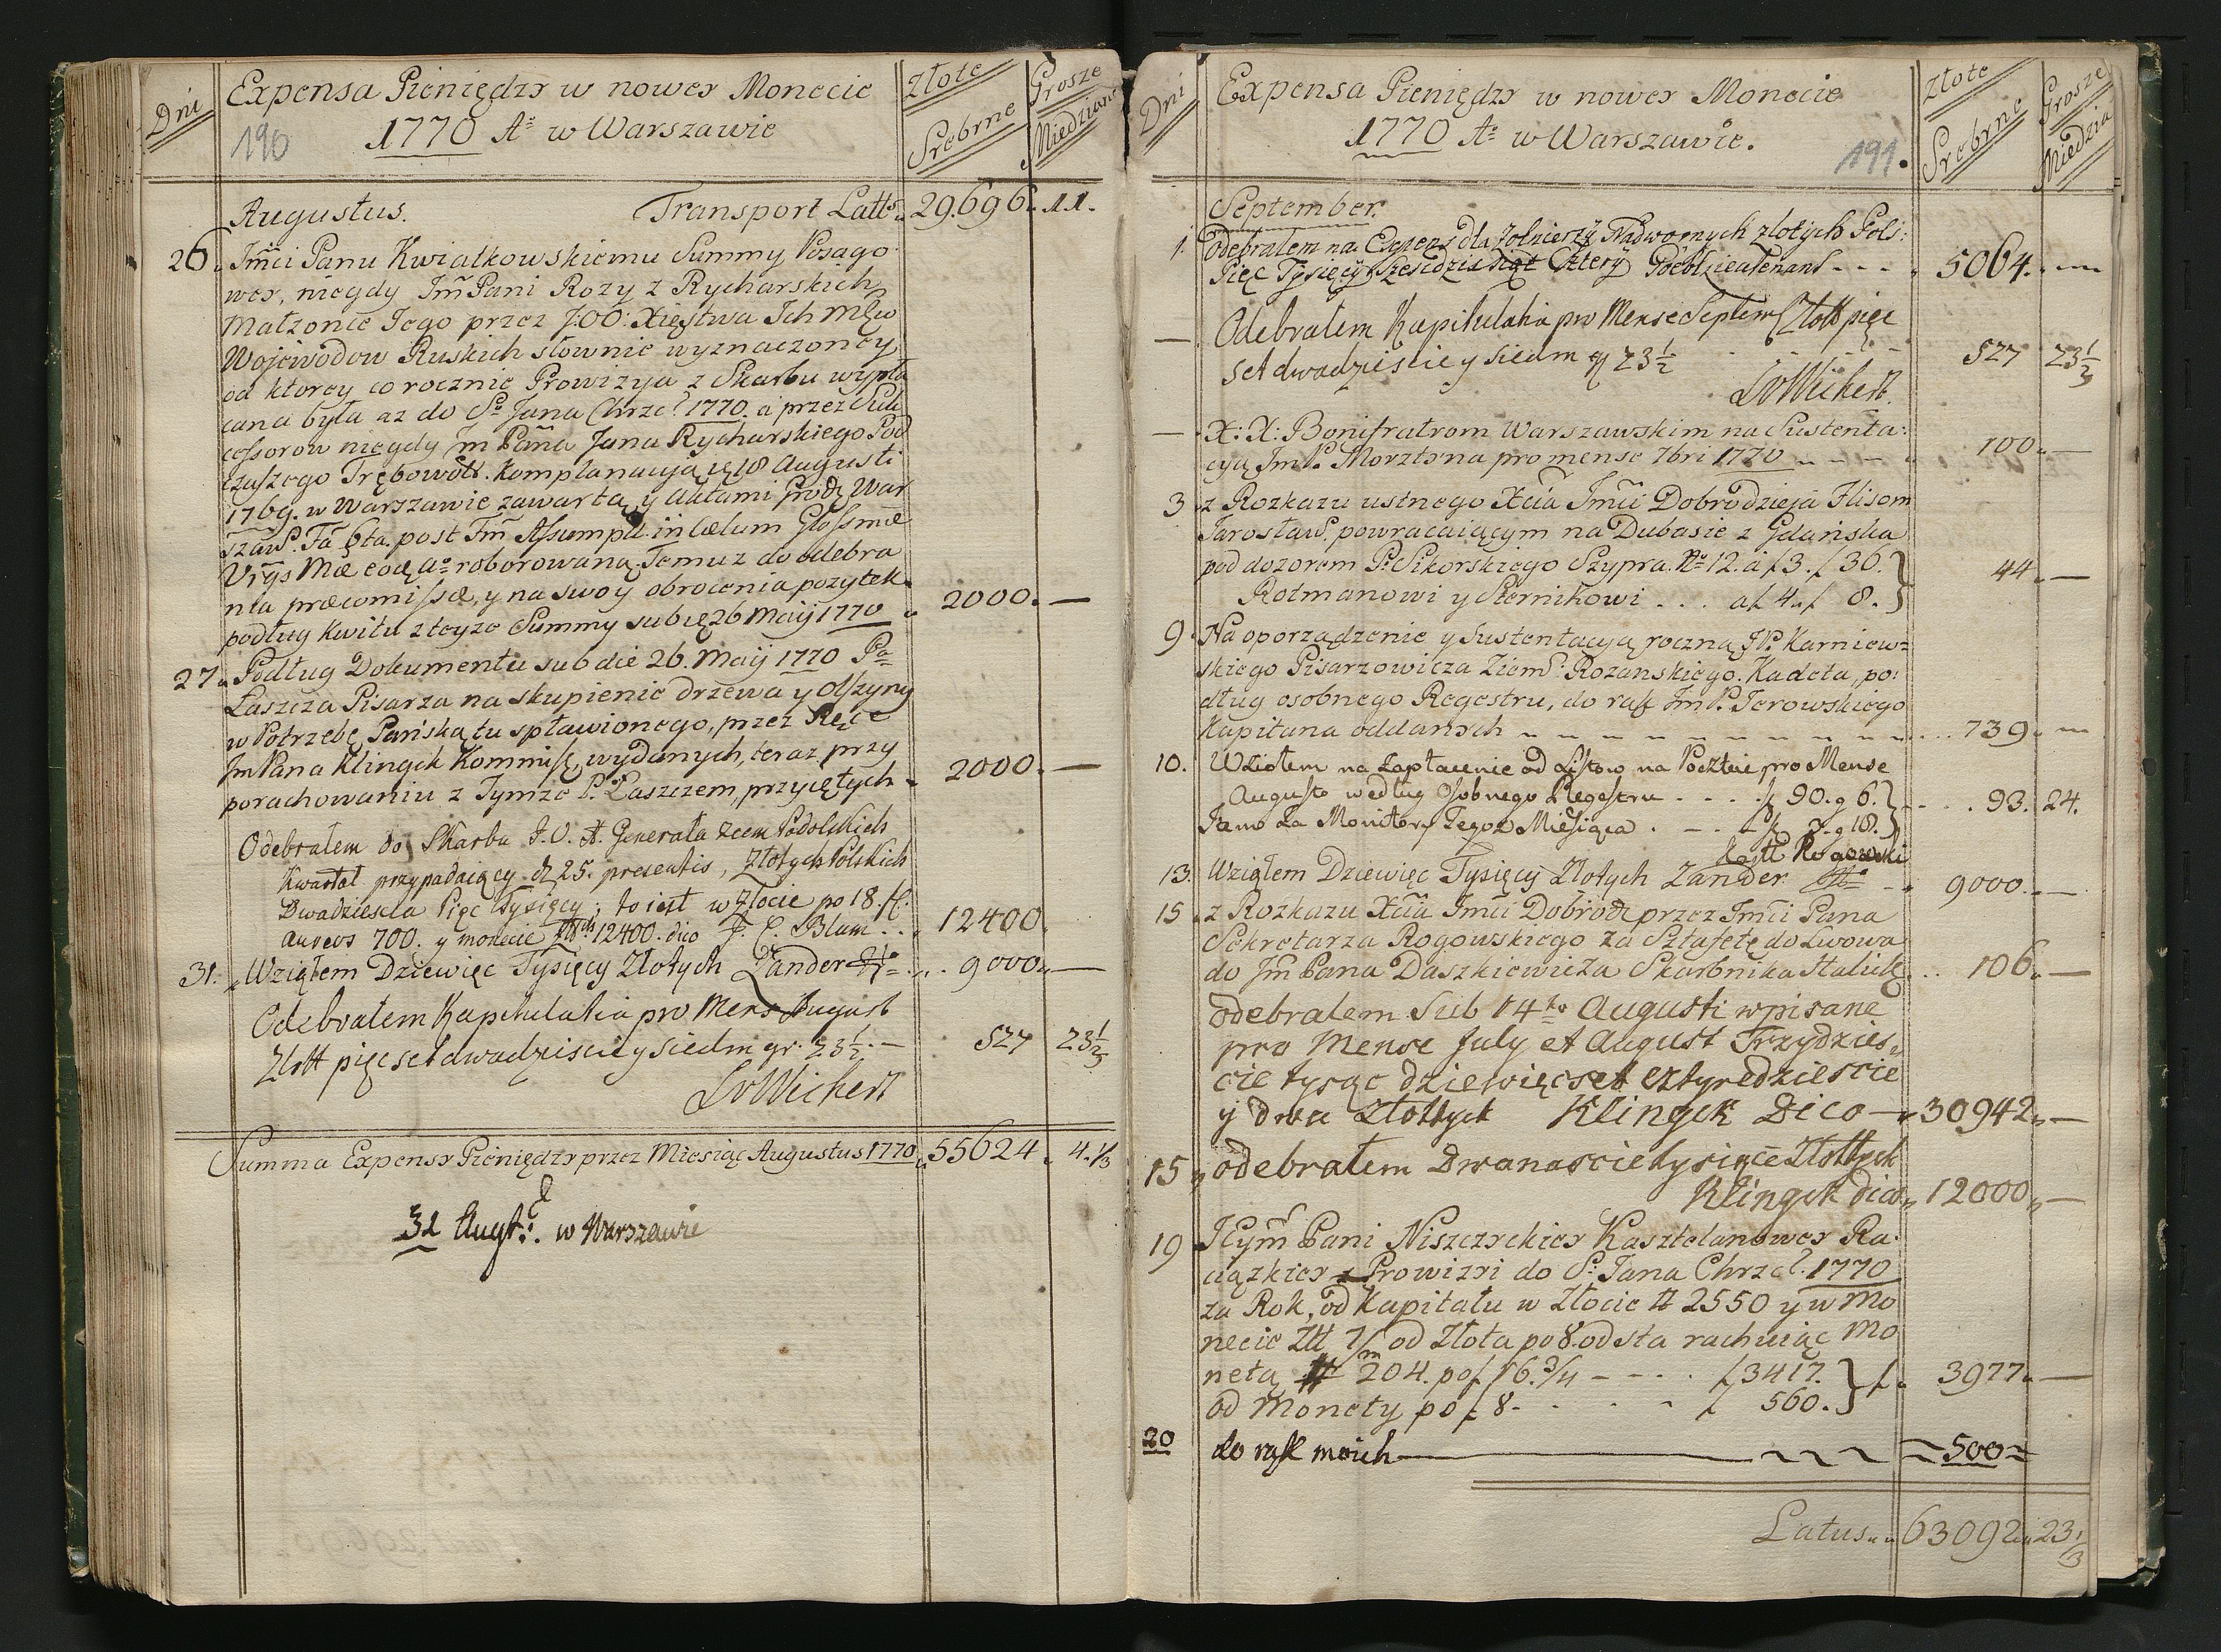 Dni
Expensa Pieniędzy w nowey Monecie
Złote Srebrne
Grosze Miedziane
190
1770 Ao w Warszawie
Augustus. Transport Latt. 29.696. 11.
26 Jmci Panu Kwiatkowskiemu Summy Posago
wey, niegdy Jm Pani Rozy z Rycharskich
Małzonce Jego przez J.OO: Xięstwa Ich Mćw
Woiewodow Ruskich słownie wyznaczoney
od ktorey co rocznie Prowizya z Skarbu wypła
cana była az do So Jana Chrzc. 1770. a przez Suk
cessorow niegdy Jm Pana Jana Rycharskiego Pod
czaszego Trębowol. Komplanacyą 18 Augusti
1769. w Warszawie zawartą, y aktami Grodz War
szaws. Fa 6ta. post Fm Assumpt. in cælum Glossmæ
Vrgs Mæ eoq ao roborowaną. Temuz do odebra
nia præcomissæ, y na swoy obrocenia pozytek
podług Kwitu z teyze Summy sub 26 Maij 1770 2000. —
27 Podług Dokumentu sub die 26. Maij 1770 Pa
Łaszcza Pisarza na skupienie drzewa y Olszyny
w Potrzebę Pańską tu spławionego, przez Ręce
Jm Pana Klingck Kommiss, wydanych, teraz przy
porachowaniu z Tymze P. Łaszczem, przyiętych 2000. —
Odebrałem do Skarbu J.O.X. Generała Ziem Podolskich
Kwartał przypadaiący d. 25. præsentis, Złotych Polskich
Dwadziescia Pięc Tysięcy; to iest w złocie po 18. fl.
aureos 700. y monecie 12400. dico J. C. Blum 12400.
31. Wziąłem Dziewięc Tysięcy Złotych Zander 9000 —
Odebrałem Kapitulatia pro Mens August
Złott pięcset dwadziscie y siedm gr. 23 1/2 — 527 23 1/3
LvWichert
Summa Expensy Pieniędzy przez Miesiąc Augustus 1770 55624. 4. 1/3
31 Augt. w Warszawie
Dni
Expensa Pieniędzy w nowey Monecie
Złote Srebrne
Grosze Miedzia
1770 Ao w Warszawie.
191.
September.
1. Odebrałem na Expens dla Zołnierzy Nadwornych złotych Pols:
Pięc Tysięcy Szescdziesiąt Cztery 5064.
— Odebrałem Kapitulatia pro Mense Septem Złott pięc
set dwadziescie y siedm 23 1/2 527 23 1/3
LvWichert.
— X: X: Bonifratrom Warszawskim na Sustenta:
cyą Jm P. Morztyna pro mense 7bri 1770 100 —
3 z Rozkazu ustnego Xcia Jmci Dobrodzieja Flisom
Jarosław. powracaiącym na Dubasie z Gdańska
pod dozorem P. Sikorskiego Szypra. No 12. a f 3. f 36.
Rotmanowi y Sternikowi . . . a f 4. f 8. 44. —
9. Na oporządzenie y Sustentacyą roczną JP. Karniew=
skiego Pisarzowicza Ziems: Rozanskiego. Kadeta, po:
dług osobnego Regestru, do rąk Jm P. Jerowskiego
Kapitana oddanych 739.
10. Wziołem na zapłacenie od Listow na Poczcie pro Mense
Augusto według Osobnego Regestru . . . . f 90. g 6.
Item za Monitory Tegoz Miesiąca . . f 3. g 18. 93. 24.
Rogowski
13. Wziąłem Dziewięc Tysięcy Złotych Zander 9000. —
15 z Rozkazu Xcia Jmci Dobrodz przez Jmci Pana
Sekretarza Rogowskiego za Sztafetę do Lwowa
do Jm Pana Daszkiewicza Skarbnika Halick 106. —
odebrałem Sub 14to Augusti wpisane
pro Mense July et August Trzydzies
cie tysąc dziewięcset cztyrdziescie
y dwa Złottych Klingck Dico — 30942. —
15 odebrałem Dwanascie tysięcē Złottych
Klingck dico 12000 —
19 JCym Pani Niszczyckiey Kasztelanowey Ra
ciązkiey z Prowizyi do S. Jana Chrzcl. 1770
za Rok, od Kapitału w Złocie # 2550 y w Mo
necie Złt 7/m od Złota po 8. od sta rachuiąc Mo
netą # 204. po f 16. 3/4 — — . . f 3417.
od Monety po f 8 . . . f 560. f. 3977. —
20 do rąk moich 500
Latus 63092. 23 1/3